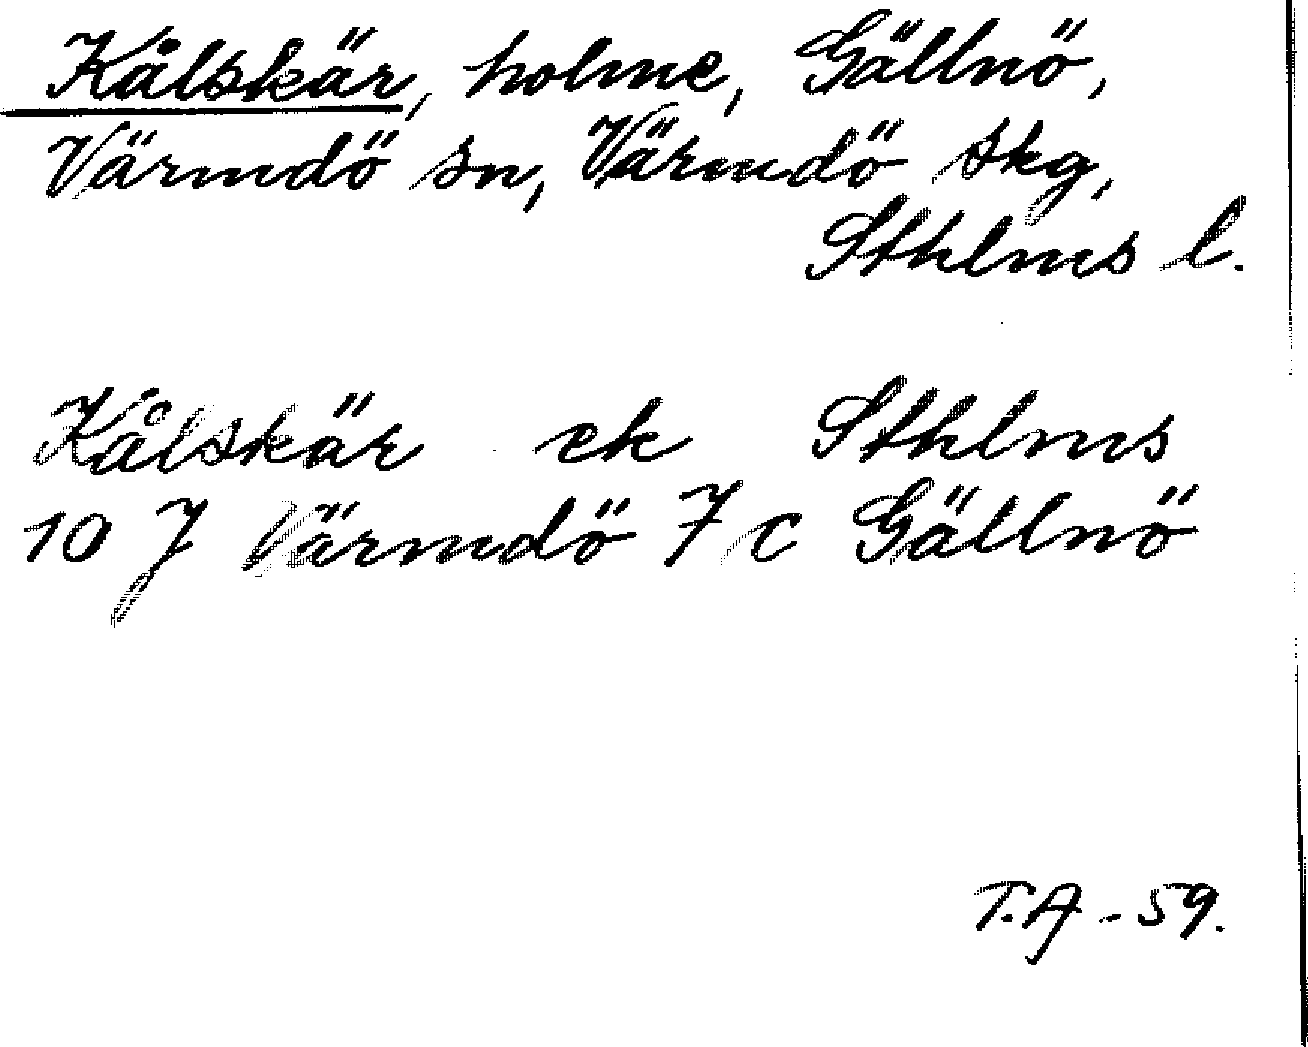 Kålskär, holme, Gällnö,
Värmdö sn, Värmdö skg,
Sthlms l.
Kålskär ek Sthlms
10 J Värmdö 7 c Gällnö
T.A -59.